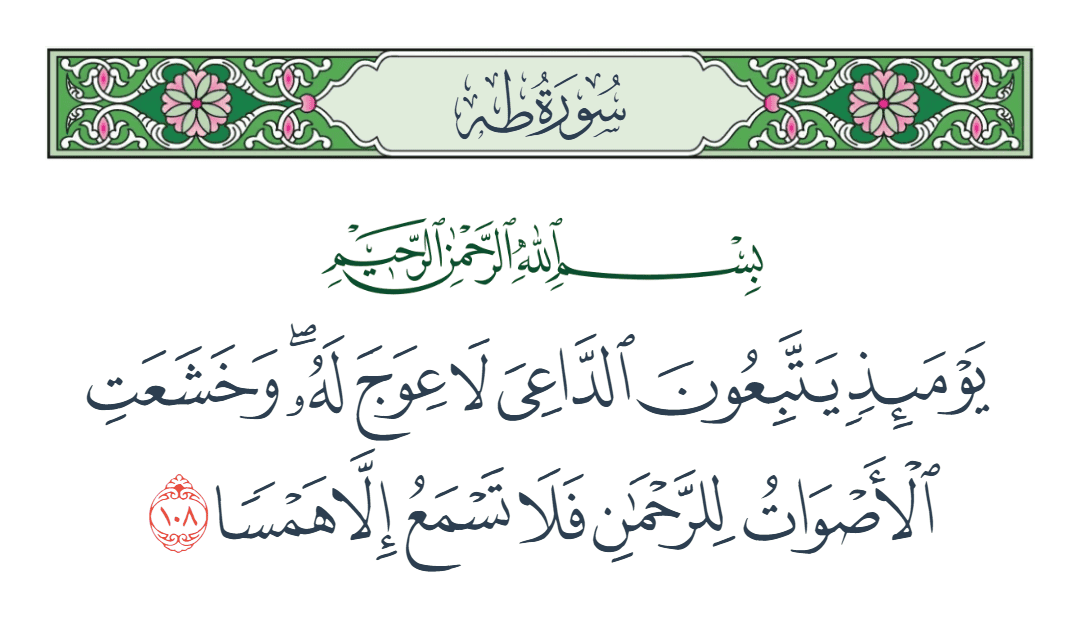 سُورَةُ طه
بِسْمِ ٱللَّهِ ٱلرَّحْمَٰنِ ٱلرَّحِيمِ
يَوْمَئِذٍ يَتَّبِعُونَ ٱلدَّاعِىَ لَا عِوَجَ لَهُۥ ۖ وَخَشَعَتِ
ٱلْأَصْوَاتُ لِلرَّحْمَٰنِ فَلَا تَسْمَعُ إِلَّا هَمْسًا ١٠٨